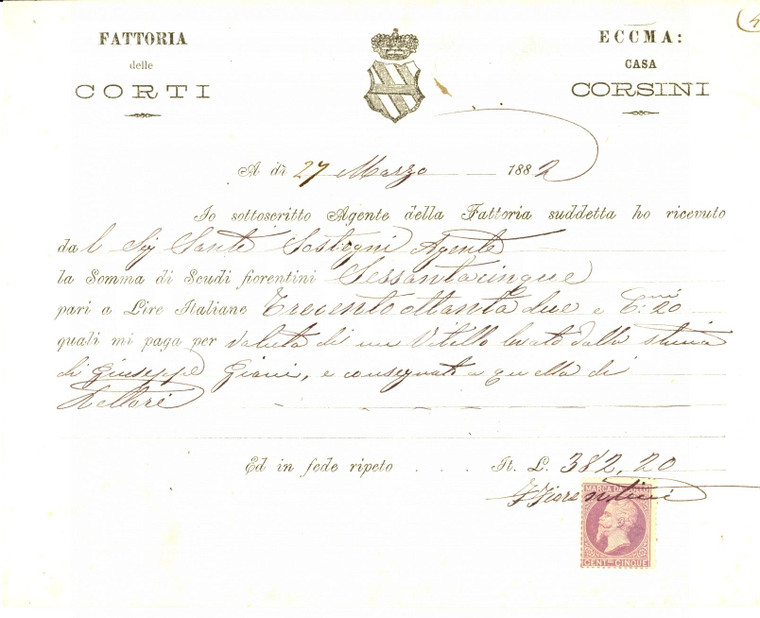 4
FATTORIA
delle
CORTI
ECCMA:
CASA
CORSINI
A dì 27 Marzo 1882
Io sottoscritto Agente della Fattoria suddetta ho ricevuto
da l Sig Santi Sostegni Agente
la Somma di Scudi fiorentini Sessantacinque
pari a Lire Italiane Trecentottantadue e C.mi 20
quali mi paga per valuta di un Vitello levato dalla
di Giuseppe Giani, e consegnato a quella di
Ed in fede ripeto . . . It. L. 382,20
Fiorentini
MARCA DA BOLLO
CENT.MI CINQUE